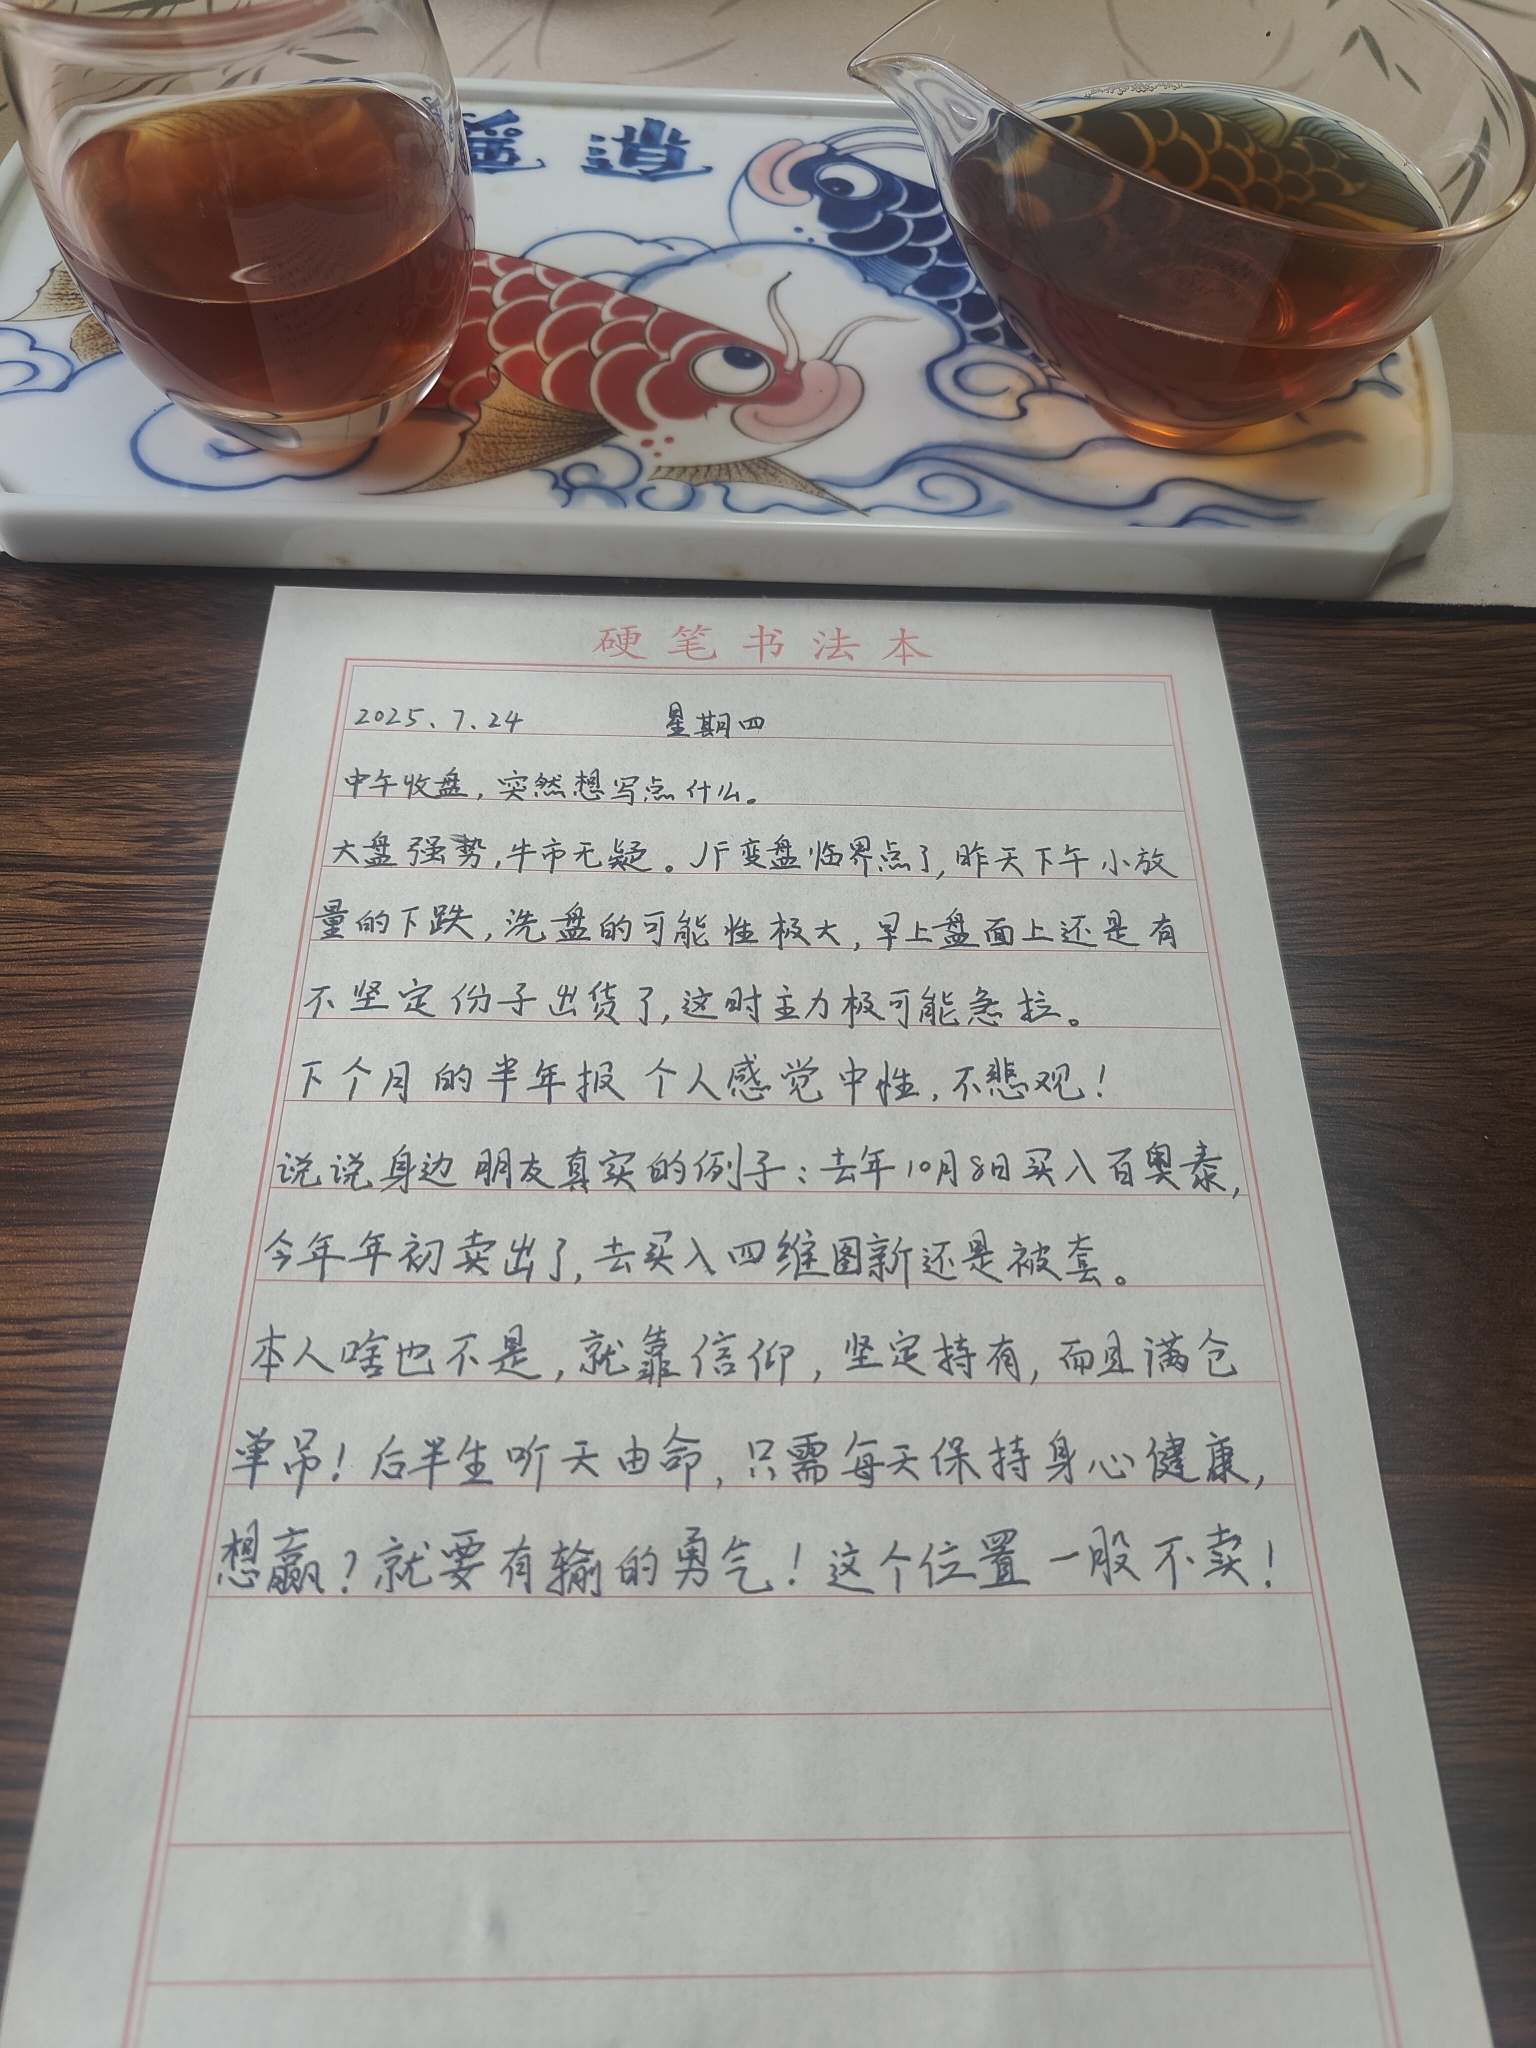 逍遥
硬笔书法本
2025.7.24 星期四
中午收盘，突然想写点什么。
大盘强势，牛市无疑。JF变盘临界点了，昨天下午小放
量的下跌，洗盘的可能性极大，早上盘面上还是有
不坚定份子出货了，这时主力极可能急拉。
下个月的半年报个人感觉中性，不悲观！
说说身边朋友真实的例子：去年10月8日买入百奥泰，
今年年初卖出了，去买入四维图新还是被套。
本人啥也不是，就靠信仰，坚定持有，而且满仓
单吊！后半生听天由命，只需每天保持身心健康，
想赢？就要有输的勇气！这个位置一股不卖！